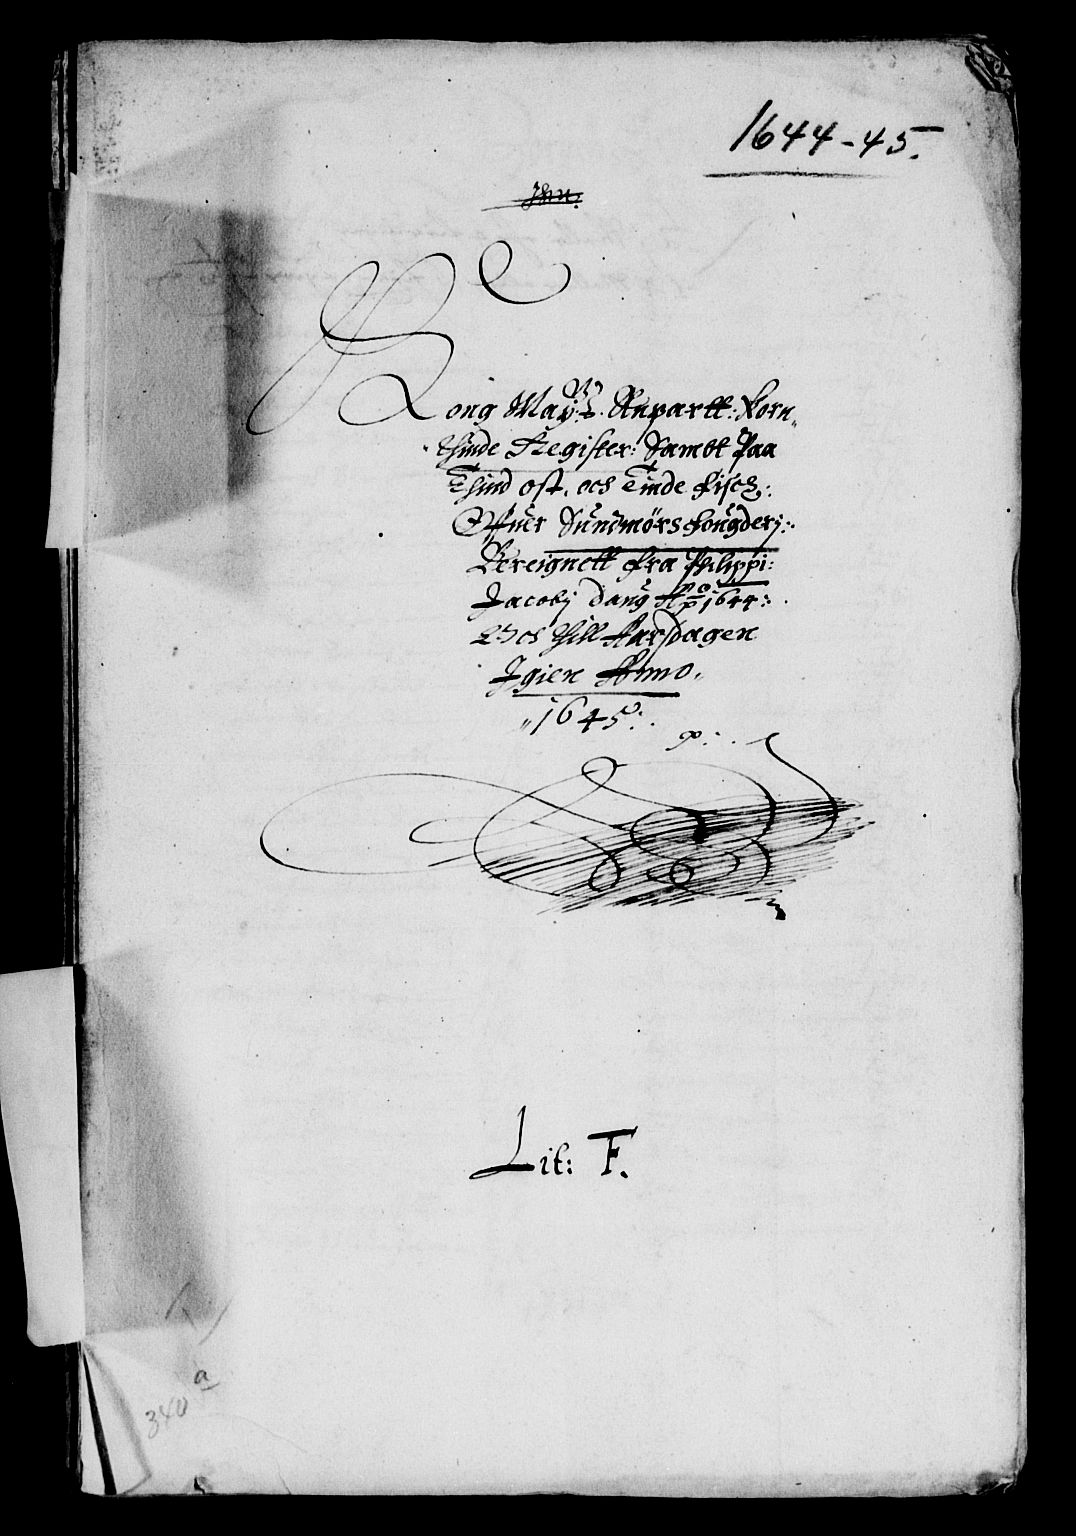 1644-45.
Jhu.
Kong May:tz. Anpartt: Korn„
thinde Register: Sambt Paa
Thind ost, och Tinde fisch:
Offuer Sundmörs fougderj:
Bereignett fra Philippi:
Jacobj dang Ao 1644:
Och thill Aarsdagen
Jgien Anno„
„1645:
Lit: F.
340 a